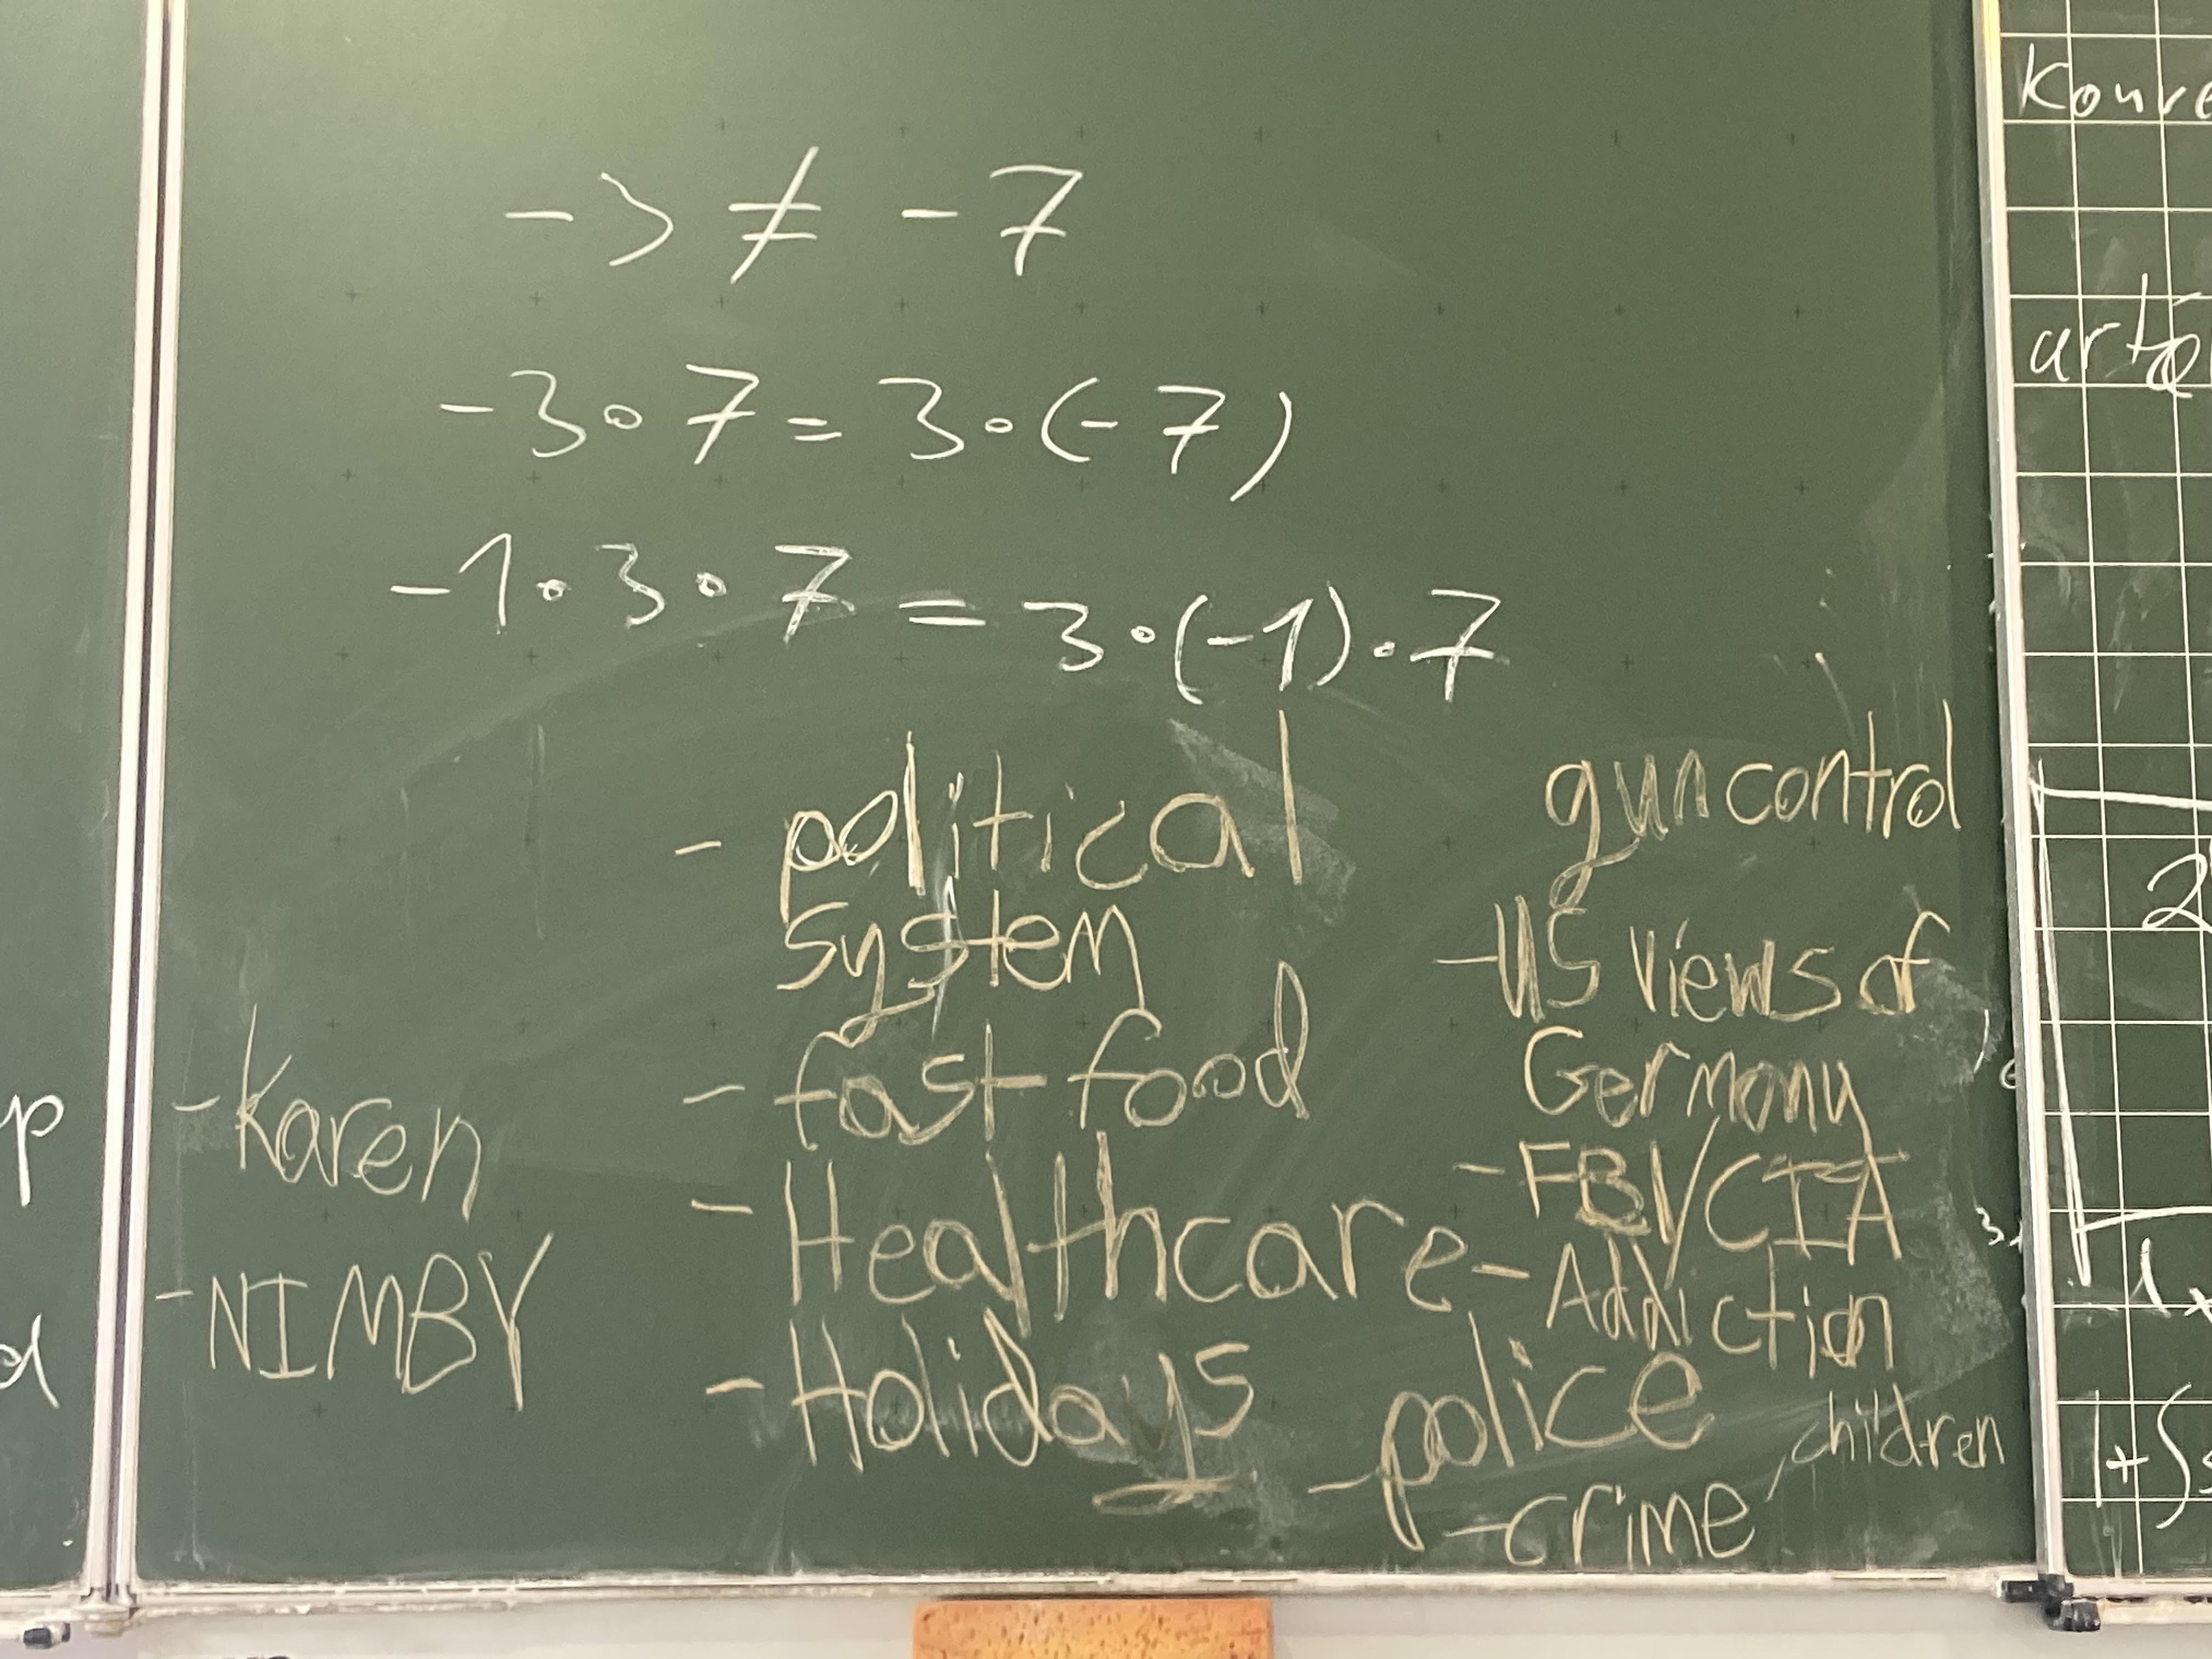 -3 ≠ -7
-3∘7=3∘(-7)
-1∘3∘7=3∘(-1)·7
- political
system
- fast food
- Healthcare
- Holidays
gun control
-US views of
Germany
- FBI/CIA
- Addiction
- police
-crime, children
-Karen
-NIMBY
2